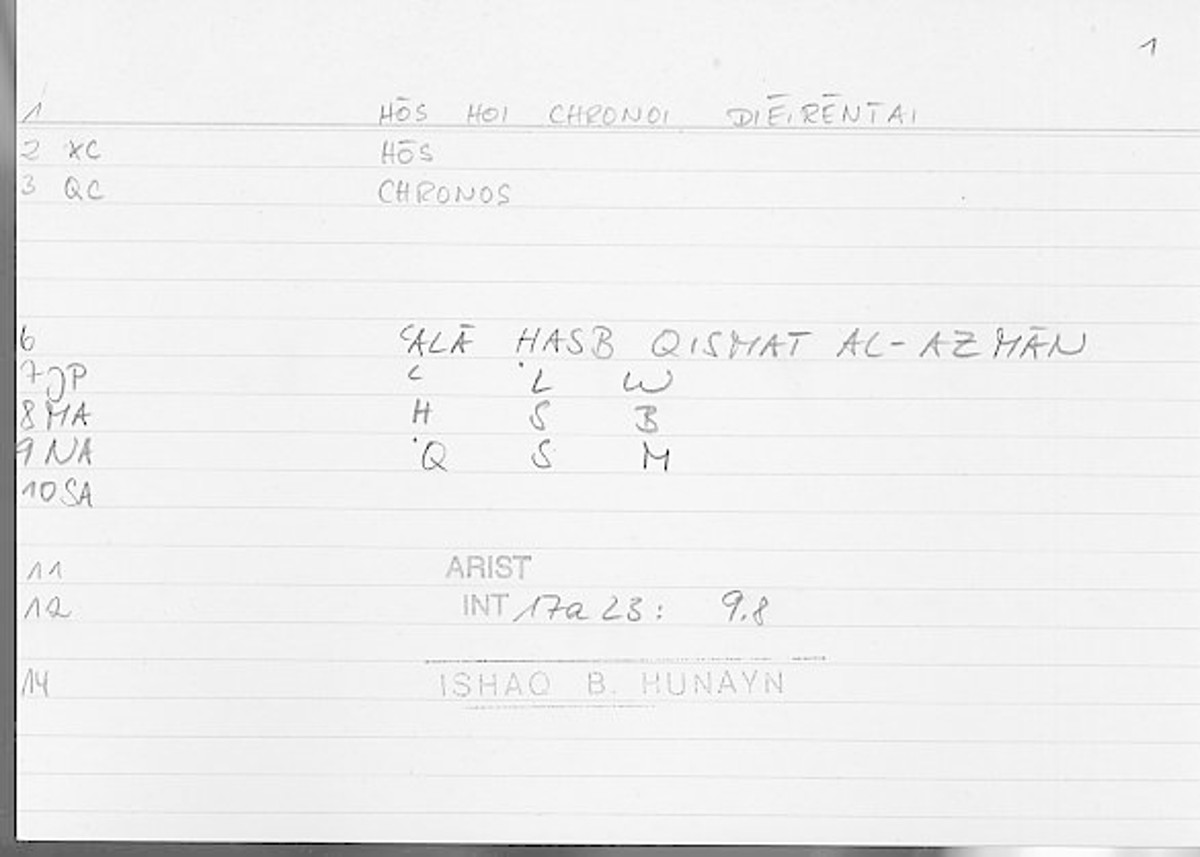 1
1 HŌS HOI CHRONOI DIĒIRĒNTAI
2 XC HŌS
3 QC CHRONOS
6 ʿALĀ HASB QISMAT AL-AZMĀN
7 JP ʿ L W
8 MA H S B
9 NA Q S M
10 SA
11 ARIST
12 INT 17a 23: 9.8
14 ISHAQ B. HUNAYN